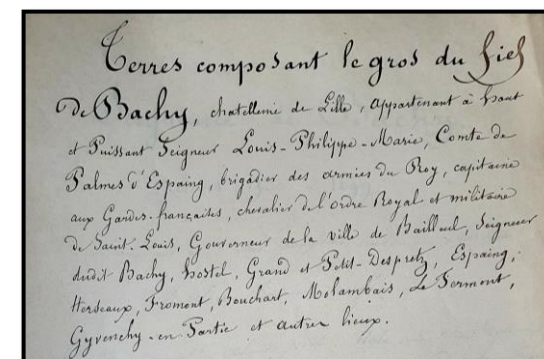 Terres composant le gros du fief
de Bachy, chatellenie de Lille, appartenant à haut
et Puissant Seigneur Louis-Philippe-Marie, Comte de
Palmes d'Espaing, brigadier des armées du Roy, capitaine
aux Gardes-françaises, chevalier de l'ordre Royal et militaire
de Saint-Louis, Gouverneur de la ville de Bailleul, Seigneur
dudit Bachy, hostel, Grand et Petit-Despretz, Espaing,
Herseaux, Froment, Bouchart, Molambais, Le Forment,
Gyvenchy-en-Partie et autres lieux.